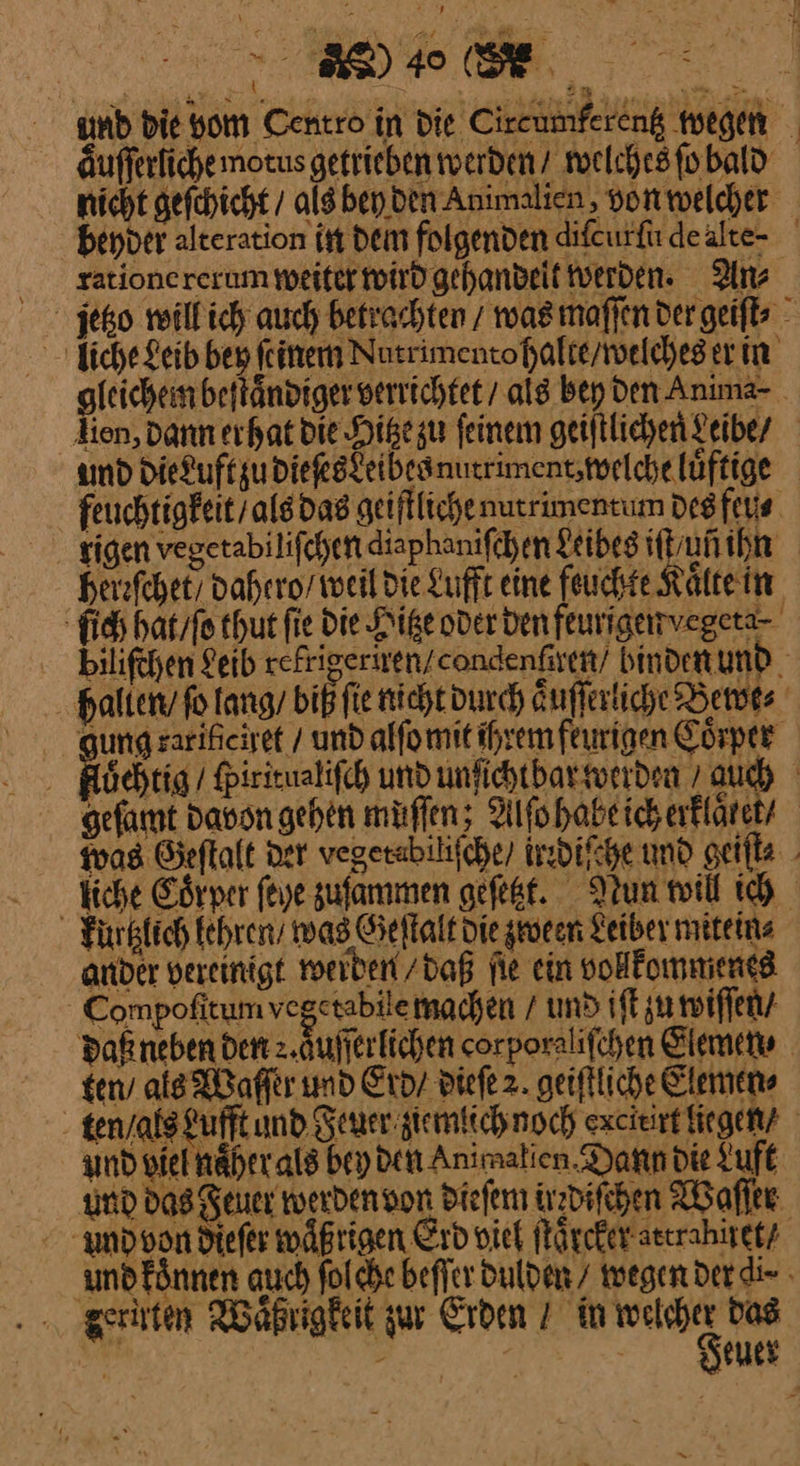 40
und die vom Centro in die Circumferentz wegen
aͤuſſerliche motus getrieben werden / welches ſo bald
nicht geſchicht / als bey den Animalien, von welcher
beyder alteration in dem folgenden diſcurſu de alte-
ratione rerum weiter wird gehandelt werden. An⸗
jetzo will ich auch betrachten / was maſſen der geiſt⸗
liche Leib bey ſeinem Nutrimento halte / welches er in
gleichem beſtaͤndiger verrichtet / als bey den Anima-
lien, dann er hat die Hitze zu ſeinem geiſtlichen Leibe /
und die Luft zu dieſes Leibes nutriment, welche luͤftige
feuchtigkeit / als das geiſtliche nutrimentum des feu⸗
rigen vegetabiliſchen diaphaniſchen Leibes iſt / uñ ihn
herꝛſchet / dahero / weil die Lufft eine feuchte Kaͤlte in
ſich hat / ſo thut ſie die Hitze oder den feurigen vegeta-
biliſchen Leib refrigeriren / condenſiren / binden und
halten / ſo lang / biß ſie nicht durch aͤuſſerliche Bewe⸗
gung rarificiret / und alſo mit ihrem feurigen Coͤrper
fluͤchtig / ſpiritualiſch und unſichtbar werden / auch
geſamt davon gehen muͤſſen; Alſo habe ich erklaͤret /
was Geſtalt der vegetabiliſche / irꝛdiſche und geiſt⸗
liche Coͤrper ſeye zuſammen geſetzt. Nun will ich
kuͤrtzlich lehren / was Geſtalt die zween Leiber mitein⸗
ander vereinigt werden / daß ſie ein vollkommenes
Compoſitum vegetabile machen / und iſt zu wiſſen /
daß neben den 2. aͤuſſerlichen corporaliſchen Elemen⸗
ten / als Waſſer und Erd / dieſe 2. geiſtliche Elemen⸗
ten / als Lufft und Feuer ziemlich noch excitirt liegen /
und viel naͤher als bey den Animalien. Dann die Luft
und das Feuer werden von dieſem irꝛdiſchen Waſſer
und von dieſer waͤßrigen Erd viel ſtaͤrcker attrahiret /
und koͤnnen auch ſolche beſſer dulden / wegen der di-
gerirten Waͤßrigkeit zur Erden / in welcher das
Feuer